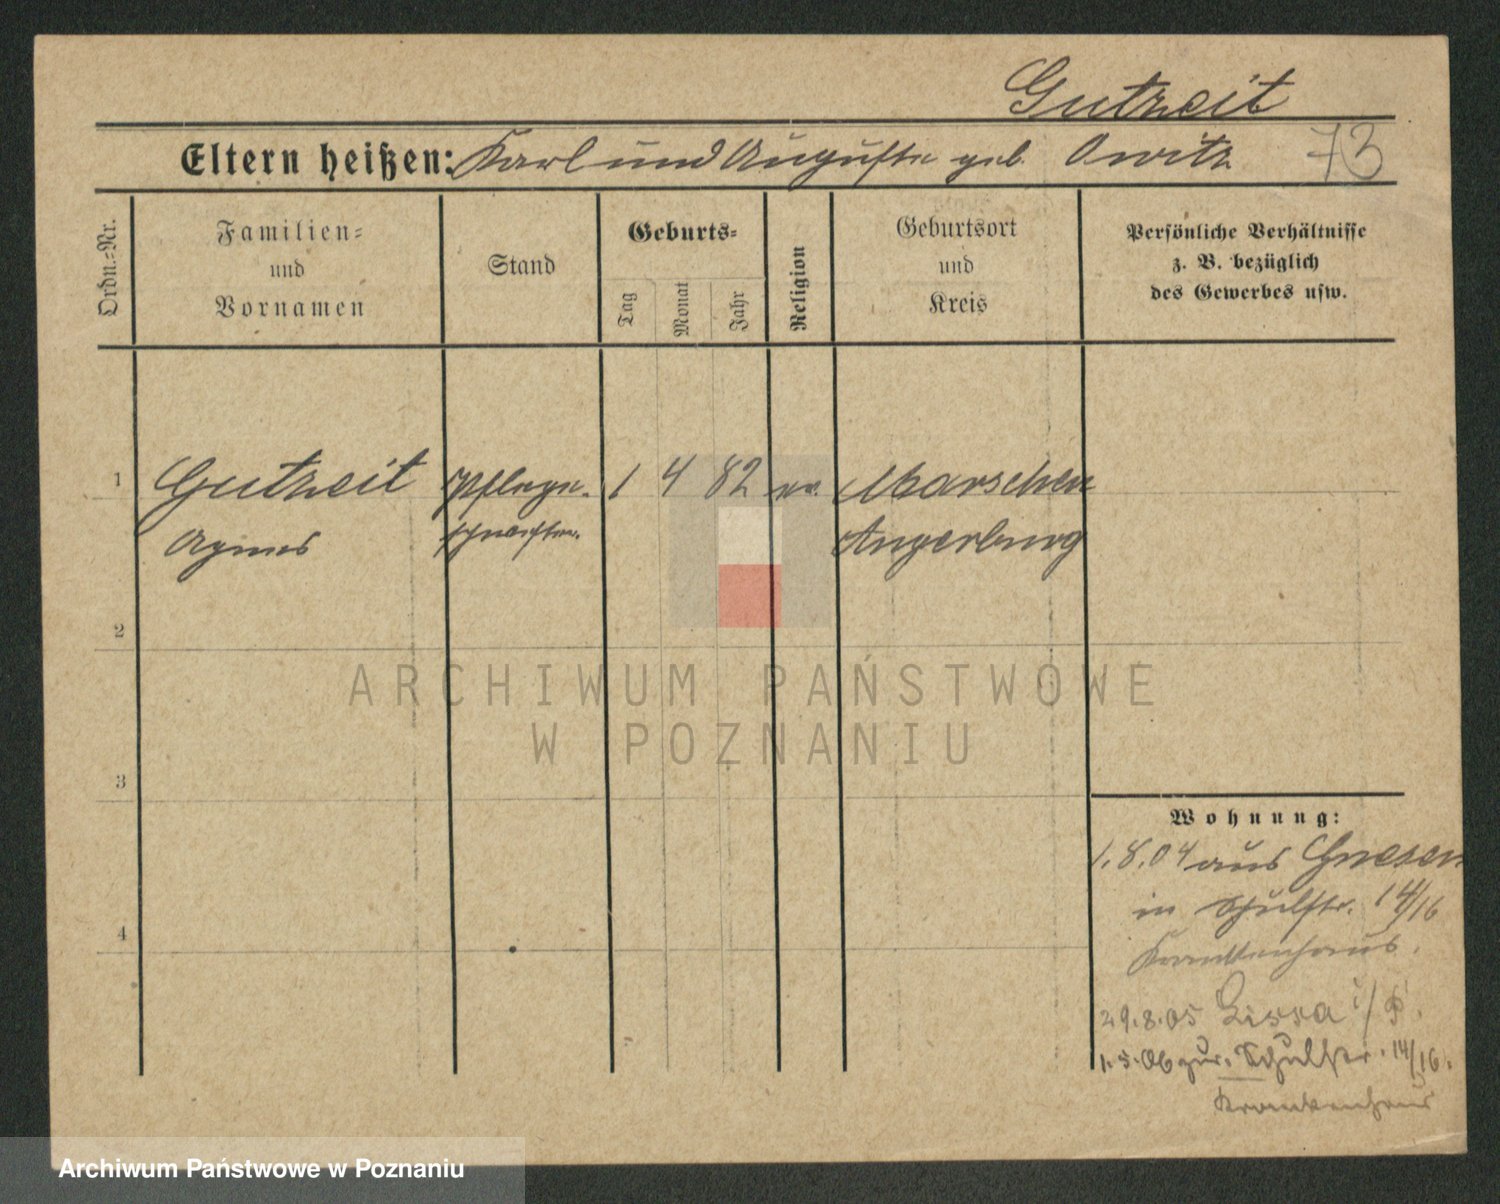 Gutzeit
Eltern heißen: Karl und Auguste geb. Owitz
73
Ordn.-Nr.
Familien-
und
Vornamen
Stand
Geburts-
Tag
Monat
Jahr
Religion
Geburtsort
und
Kreis
Persönliche Verhältnisse
z. B. bezüglich
des Gewerbes usw.
1 Gutzeit Pflege- 1 4 82 ev. Marschen
Agnes schwester. Angerburg
2
3
4
ARCHIWUM PAŃSTWOWE
W POZNANIU
Wohnung:
1.8.04 aus Gnesen
in Schulstr. 14/16
Krankenhaus.
29.8.05 Lissa i/P.
1.5.06 zur. Schulstr. 14/16.
Krankenhaus
Archiwum Państwowe w Poznaniu